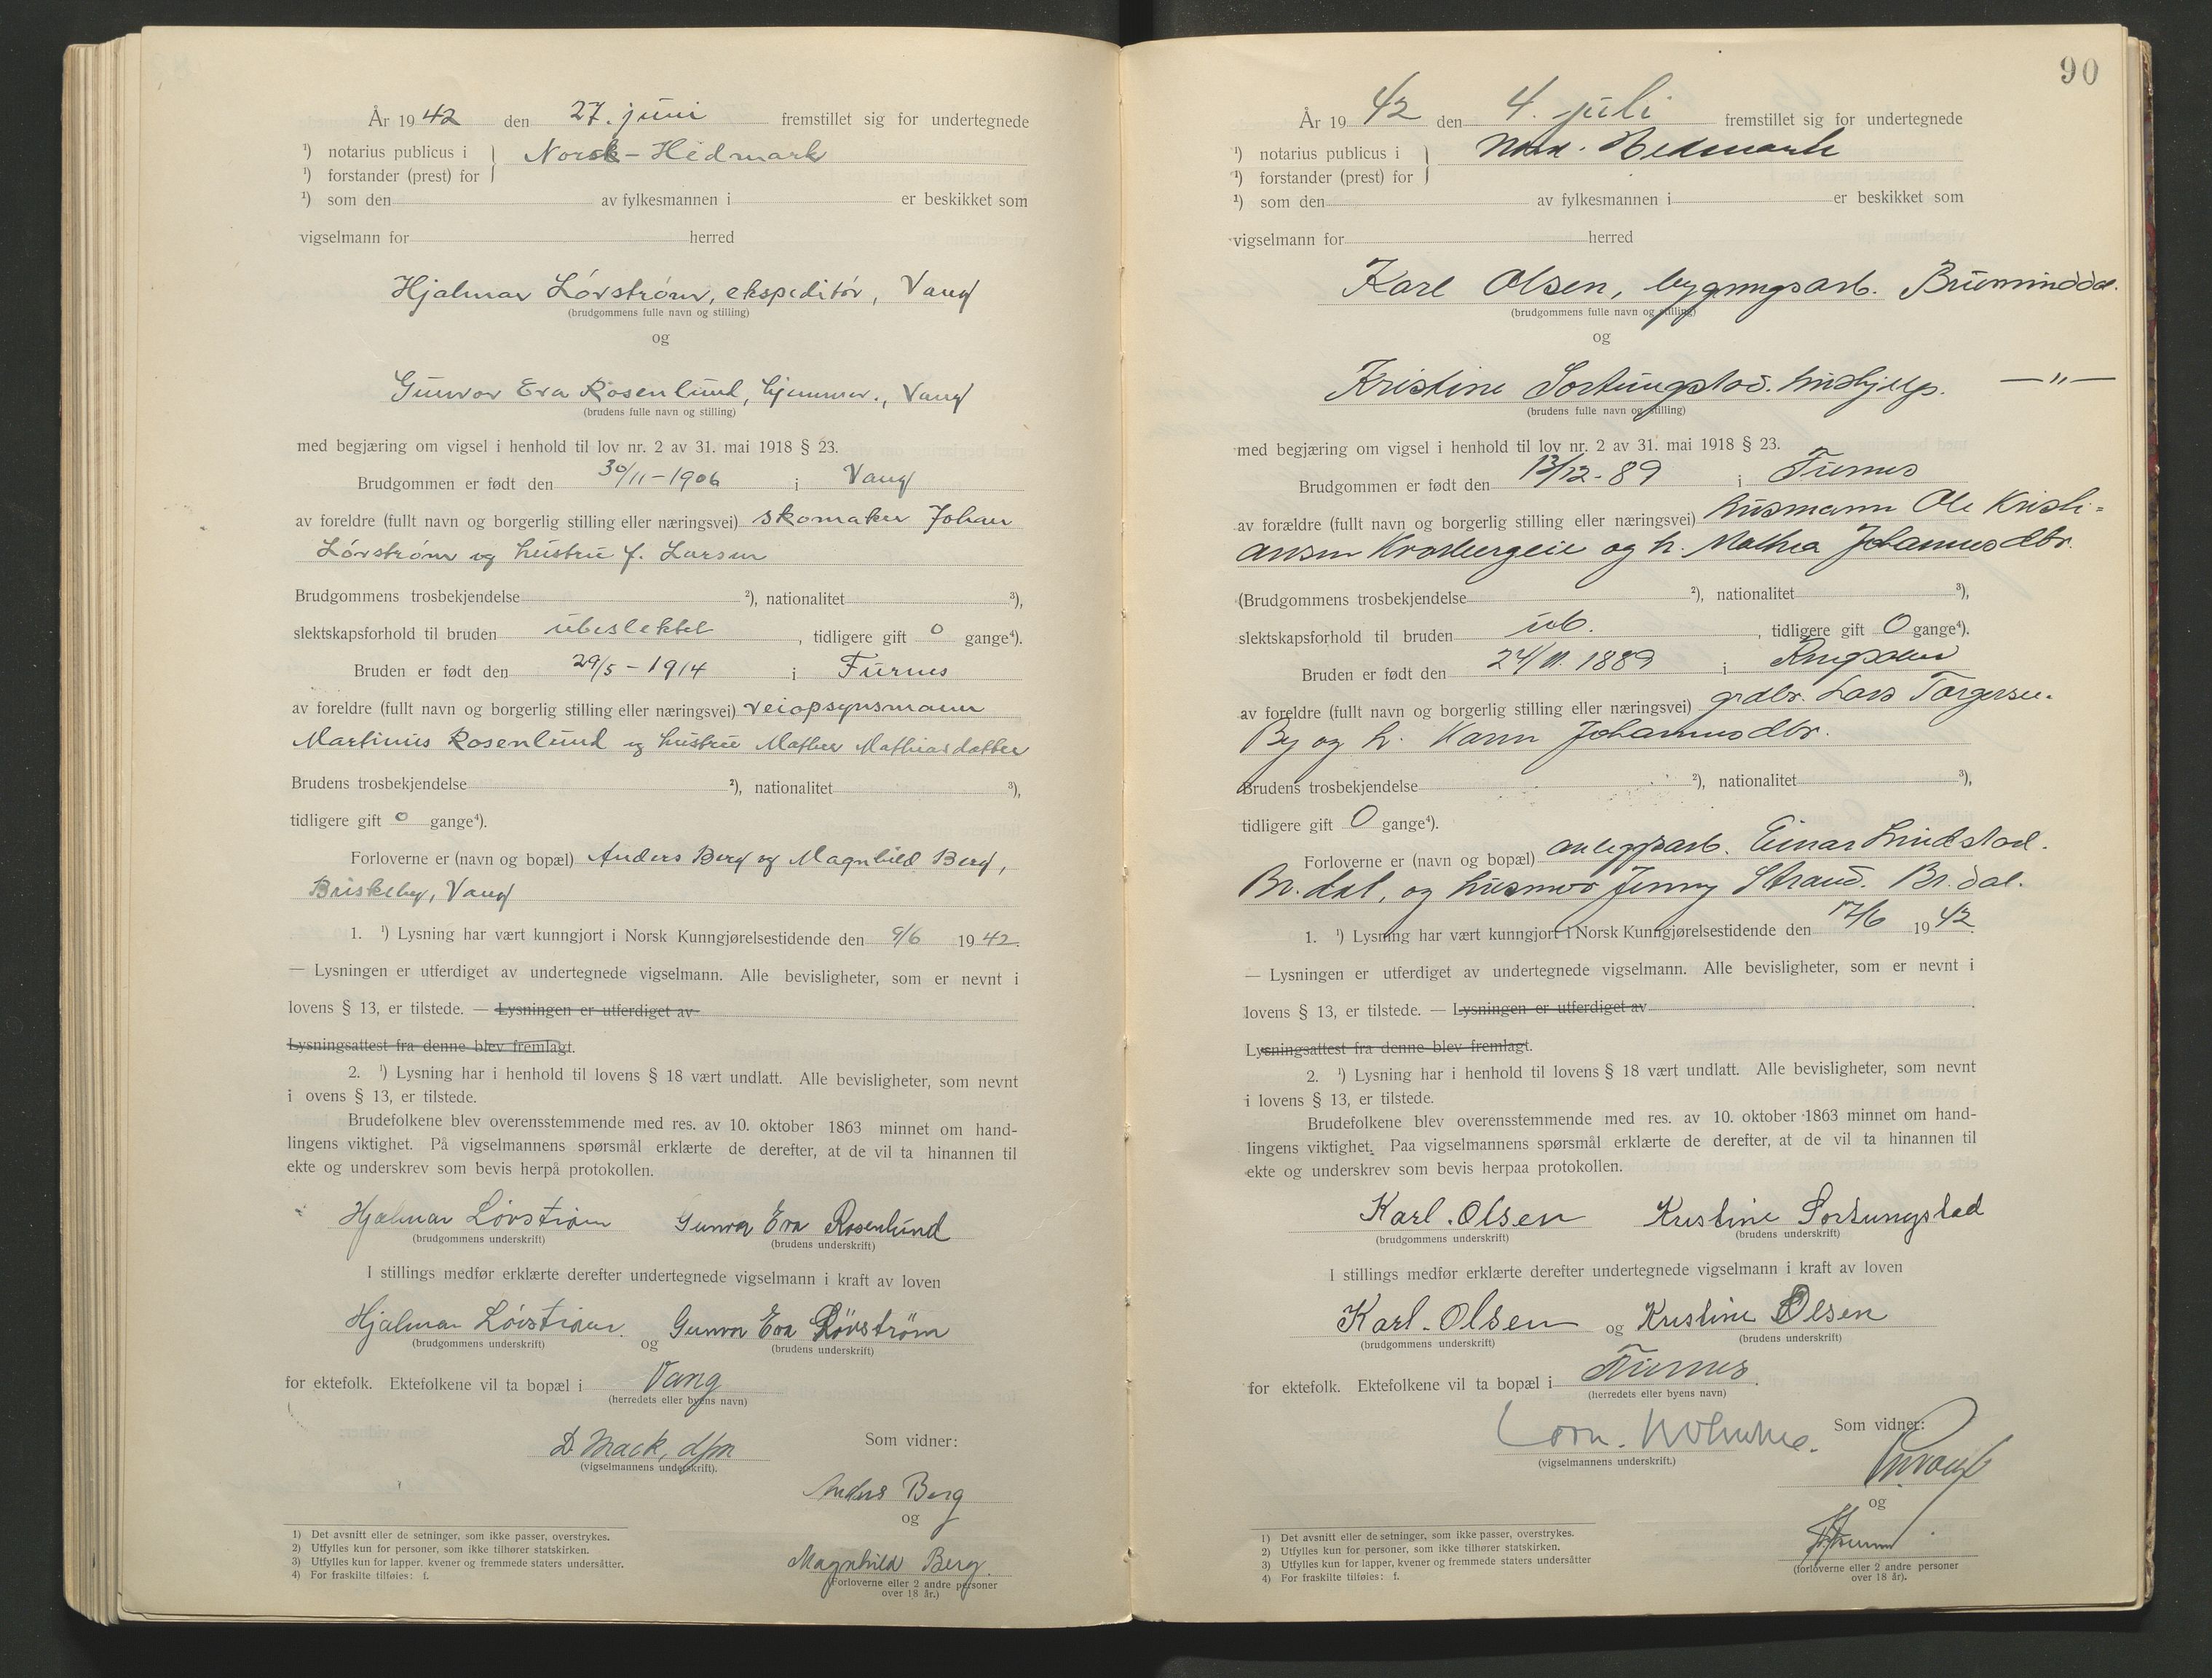 År 1942 den 27. juni fremstillet sig for undertegnede
¹) notarius publicus i } Norsk-Hedmark
¹) forstander (prest) for
¹) som den av fylkesmannen i er beskikket som
vigselmann for herred
Hjalmar Lövström, ekspeditör, Vang
(brudgommens fulle navn og stilling)
og
Gunvor Eva Rosenlund, hjemmev., Vang
(brudens fulle navn og stilling)
med begjæring om vigsel i henhold til lov nr. 2 av 31. mai 1918 § 23.
Brudgommen er født den 30/11-1906 i Vang
av foreldre (fullt navn og borgerlig stilling eller næringsvei) skomaker Johan
Lövström og hustru f. Larsen
Brudgommens trosbekjendelse ²), nationalitet ³),
slektskapsforhold til bruden ubeslektet, tidligere gift 0 gange⁴).
Bruden er født den 29/5-1914 i Furnes
av foreldre (fullt navn og borgerlig stilling eller næringsvei) veiopsynsmann
Martinus Rosenlund og hustru Mathea Mathiasdatter
Brudens trosbekjendelse ²), nationalitet ³),
tidligere gift 0 gange⁴).
Forloverne er (navn og bopæl) Anders Berg og Magnhild Berg,
Briskeby, Vang
1. ¹) Lysning har vært kunngjort i Norsk Kunngjørelsestidende den 9/6 1942.
— Lysningen er utferdiget av undertegnede vigselmann. Alle bevisligheter, som er nevnt i
lovens § 13, er tilstede. — Lysningen er utferdiget av
Lysningsattest fra denne blev fremlagt.
2. ¹) Lysning har i henhold til lovens § 18 vært undlatt. Alle bevisligheter, som nevnt
i ovens § 13, er tilstede.
Brudefolkene blev overensstemmende med res. av 10. oktober 1863 minnet om hand-
lingens viktighet. På vigselmannens spørsmål erklærte de derefter, at de vil ta hinannen til
ekte og underskrev som bevis herpå protokollen.
Hjalmar Lövström Gunvor Eva Rosenlund
(brudgommens underskrift) (brudens underskrift)
I stillings medfør erklærte derefter undertegnede vigselmann i kraft av loven
Hjalmar Lövström og Gunvor Eva Lövström
(brudgommens underskrift) (brudens underskrift)
for ektefolk. Ektefolkene vil ta bopæl i Vang
(herredets eller byens navn)
D. Mack, dfm
(vigselmannens underskrift).
Som vidner:
Anders Berg
og
Magnhild Berg.
(Forloverne eller 2 andre personer
over 18 år.)
1) Det avsnitt eller de setninger, som ikke passer, overstrykes.
2) Utfylles kun for personer, som ikke tilhører statskirken.
3) Utfylles kun for lapper, kvener og fremmede staters undersåtter.
4) For fraskilte tilføies: f.
90
År 1942 den 4. juli fremstillet sig for undertegnede
¹) notarius publicus i } Nord-Hedmark
¹) forstander (prest) for
¹) som den av fylkesmannen i er beskikket som
vigselmann for herred
Karl Olsen, bygningsarb. Brumunddal.
(brudgommens fulle navn og stilling)
og
Kristine Sortungstad. hushjelp. —"—
(brudens fulle navn og stilling)
med begjæring om vigsel i henhold til lov nr. 2 av 31. mai 1918 § 23.
Brudgommen er født den 13/12-89 i Furnes
av forældre (fullt navn og borgerlig stilling eller næringsvei) husmann Ole Kristi-
ansen og h. Mathea Johannesdtr.
(Brudgommens trosbekjendelse ²), nationalitet ³),
slektskapsforhold til bruden ub., tidligere gift 0 gange⁴).
Bruden er født den 24/11.1889 i Ringsaker
av foreldre (fullt navn og borgerlig stilling eller næringsvei) grdbr. Lars Torgersen.
By og h. Karen Johannesdtr.
Brudens trosbekjendelse ²), nationalitet ³),
tidligere gift 0 gange⁴).
Forloverne er (navn og bopæl) anleggsarb. Einar Lundstad.
Br.dal, og husmor Jenny Strand. Br.dal.
1. ¹) Lysning har vært kunngjort i Norsk Kunngjørelsestidende den 17/6 1942.
— Lysningen er utferdiget av undertegnede vigselmann. Alle bevisligheter, som er nevnt i
lovens § 13, er tilstede. — Lysningen er utferdiget av
Lysningsattest fra denne blev fremlagt.
2. ¹) Lysning har i henhold til lovens § 18 vært undlatt. Alle bevisligheter, som nevnt
i lovens § 13, er tilstede.
Brudefolkene blev overensstemmende med res. av 10. oktober 1863 minnet om hand-
lingens viktighet. Paa vigselmannens spørsmål erklærte de derefter, at de vil ta hinannen til
ekte og underskrev som bevis herpaa protokollen.
Karl. Olsen Kristine Sortungstad
(brudgommens underskrift) (brudens underskrift)
I stillings medfør erklærte derefter undertegnede vigselmann i kraft av loven
Karl. Olsen og Kristine Olsen
(brudgommens underskrift) (brudens underskrift)
for ektefolk. Ektefolkene vil ta bopæl i Furnes.
(herredets eller byens navn)
(vigselmannens underskrift.)
Som vidner:
og
(forloverne eller 2 andre personer
over 18 år).
1) Det avsnitt eller de setninger, som ikke passer, overstrykes.
2) Utfylles kun for personer, som ikke tilhører statskirken.
3) Utfylles kun for lapper, kvener og fremmede staters undersåtter
4) For fraskilte tilføies: f.